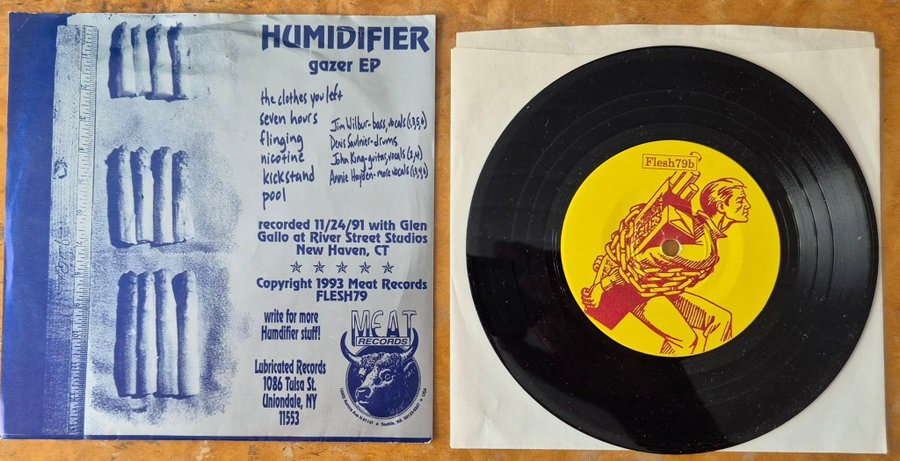 HUMIDIFIER
gazer EP
the clothes you left
seven hours
flinging
nicotine
kickstand
pool
Jim Wilbur-bass, vocals (1,3,5,6)
Denis Saulnier-drums
John King-guitar, vocals (2,4)
Annie Hayden-more vocals
recorded 11/24/91 with Glen
Gallo at River Street Studios
New Haven, CT
Copyright 1993 Meat Records
FLESH79
write for more
Humdifier stuff!
Lubricated Records
1086 Tulsa St.
Uniondale, NY
11553
MEAT
RECORDS
Seattle, WA
USA
Flesh79b